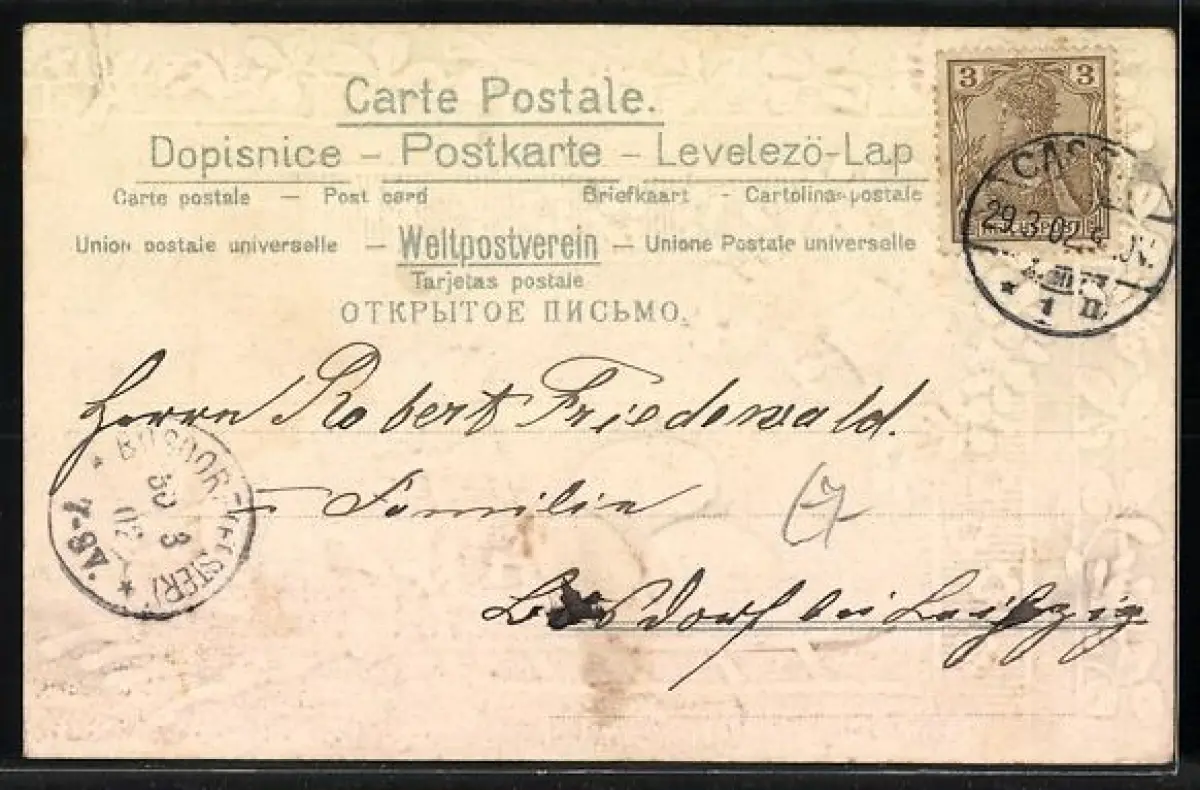 Carte Postale.
Dopisnice – Postkarte – Levelezö-Lap
Carte postale — Post card Briefkaart - Cartolina postale
Union postale universelle — Weltpostverein — Unione Postale universelle
Tarjetas postale
ОТКРЫТОЕ ПИСЬМО.
3 3
CASSEL
29.3.02
* 1 n
Herrn Robert Friedewald.
– Familie
dorf bei Leipzig
(ELSTER)
30 3
02
7-8V.